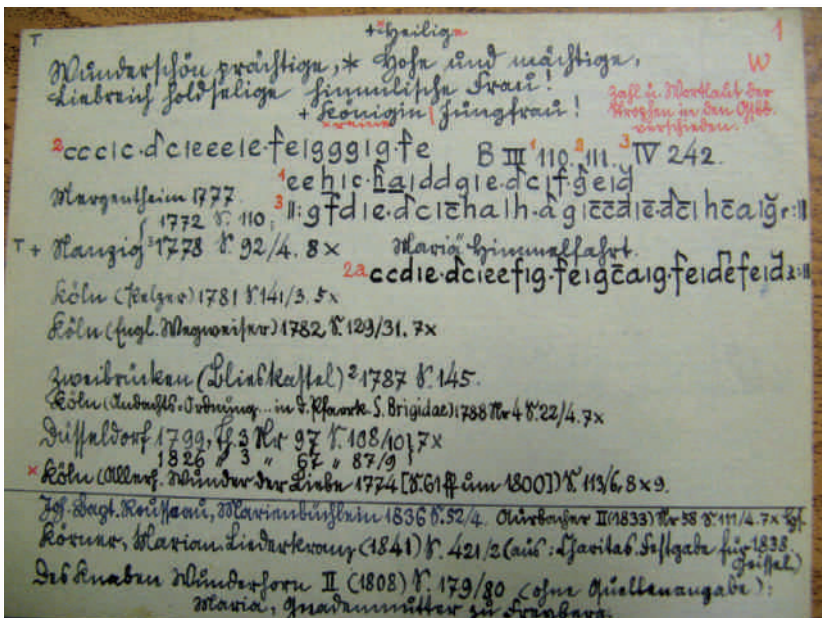 T + *Heilige 1
Wunderschön prächtige, * Hohe und mächtige, W
Liebreich holdselige himmlische Frau!
+ Königin | Jungfrau!
Zahl u. Wortlaut der
Strophen in den Gsbb.
verschieden.
²cccıc·dcıeeeıe·feıgggıg·fe B III ¹110. ²111. ³IV 242.
¹eehıc·haıddgıe·dcıf·geıd
Mergentheim 1777.
1772 S. 110;
³ıı:gfdıe·dcıchaıh·agıccdıe·dcıhcaıg
T + Nanzig ³1778 S. 92/4. 8x Mariä Himmelfahrt.
2a ccdıe·dcıeefıg·feıgcaıg·feıdefeıd
Köln (Kelzer) 1781 S 141/3. 5x
Köln (Engl. Wegweiser) 1782 S. 129/31. 7x
Zweibrücken (Blieskastel) ²1787 S. 145.
Köln (Andachts-Ordnung... in d. Pfarrk. S. Brigidae) 1788 Nr 4 S. 22/4. 7x
Düsseldorf 1799, Th. 3 Nr 97 S. 108/10 } 7x
1826 " 3 " 67 " 87/9 }
x Köln (Allerh. Wunder der Liebe 1774 [S. 61 ff um 1800]) S. 113/6, 8x9.
Jos. Bapt. Rousseau, Marienbüchlein 1836 S. 52/4. Aurbacher II (1833) Nr 58 S. 111/4. 7x
Körner, Marian. Liederkranz (1841) S. 421/2 (aus: Charitas. Festgabe für 1838.
Geissel)
Des Knaben Wunderhorn II (1808) S. 179/80 (ohne Quellenangabe):
Maria, Gnadenmutter zu Freyberg.